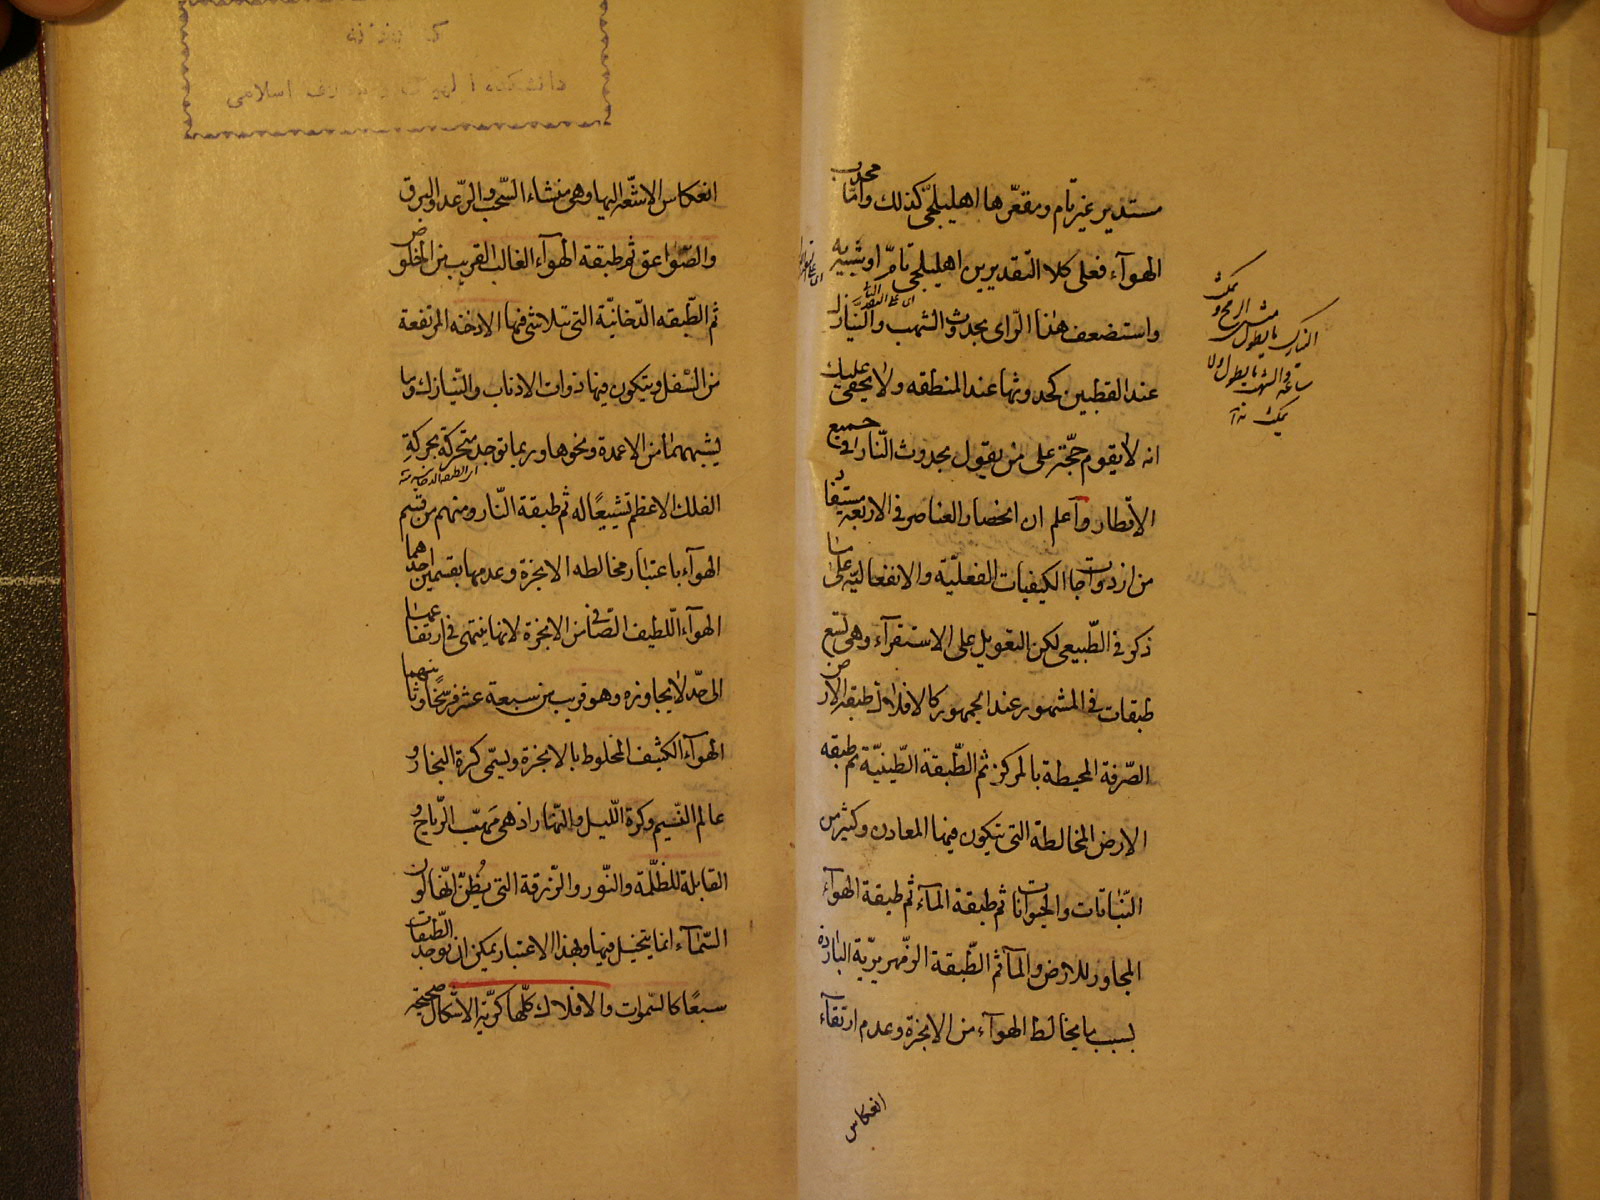 مستدير غير تام ومقعّرها اهليلجىّ كذلك وامّا محدب
الهوآء فعلى كلا التقديرين اهليلجى تامّ او شبيه به
واستضعف هذا الرّاى بحدوث الشهب والنّيازك
عند القطبين كحدوثها عند المنطقه ولا يخفى عليك
انه لا يقوم حجّة على من يقول بحدوث النّار فى جميع
الاقطار وآعلم ان انحصار العناصر فى الاربعة مستفاد
من ازدواجات الكيفيات الفعليّة والانفعاليّه على ما
ذكر فى الطّبيعى لكن التعويل على الاستقرآء وهى تسع
طبقات فى المشهور عند الجمهور كالافلاك طبقة الارض
الصّرفة المحيطة بالمركز ثم الطّبقة الطّينيّة ثم طبقه
الارض المخالطة التى يتكون فيها المعادن وكثير من
النّباتات والحيوانات ثم طبقة المآء ثم طبقة الهوآء
المجاور للارض والمآ ثم الطّبقة الزمّهريريّة الباردة
بسبب ما يخالط الهوآء من الابخرة وعدم ارتقآء
انعكاس
النيازك ما يطول
يمكث
انعكاس الاشعّه اليها وهى منشاء السّحب والرّعد والبرق
والصّواعق ثم طبقة الهوآء الغالب القريب من الخلوص
ثم الطّبقه الدّخانيّة التى تتلاشى فيها الادخنه المرتفعة
من السّفل ويتكون فيها ذوات الاذناب والنّيازك وما
يشبههما من الاعمدة ونحوها وربما توجد متحركة بحركة
اى الطبقة الدخانية منه
الفلك الاعظم تشييعًا له ثم طبقة النّار ومنهم من قسّم
الهوآء باعتبار مخالطه الابخرة وعدمها بقسمين احدهما
الهوآء اللّطيف الصّافى من الابخرة لانها ينتهى فى ارتفاعها
الى حدّ لا يجاوزه وهو قريب من سبعة عشر فرسخًا وثانيهما
الهوآء الكثيف المخلوط بالابخرة ويسمّى كرة البخار و
عالم النّسيم وكرة اللّيل والنّهار اذ هى مَهبّ الرّياح و
القابلة للظلّمة والنّور والزّرقة التى يُظنّ انّها لون
السّمآء انما يتخيل فيها وبهذا الاعتبار يمكن ان توجد الطّبقات
سبعًا كالسّموات والافلاك كلّها كريّة الاشكال صحيحة
دانشکده الهیات و معارف اسلامی